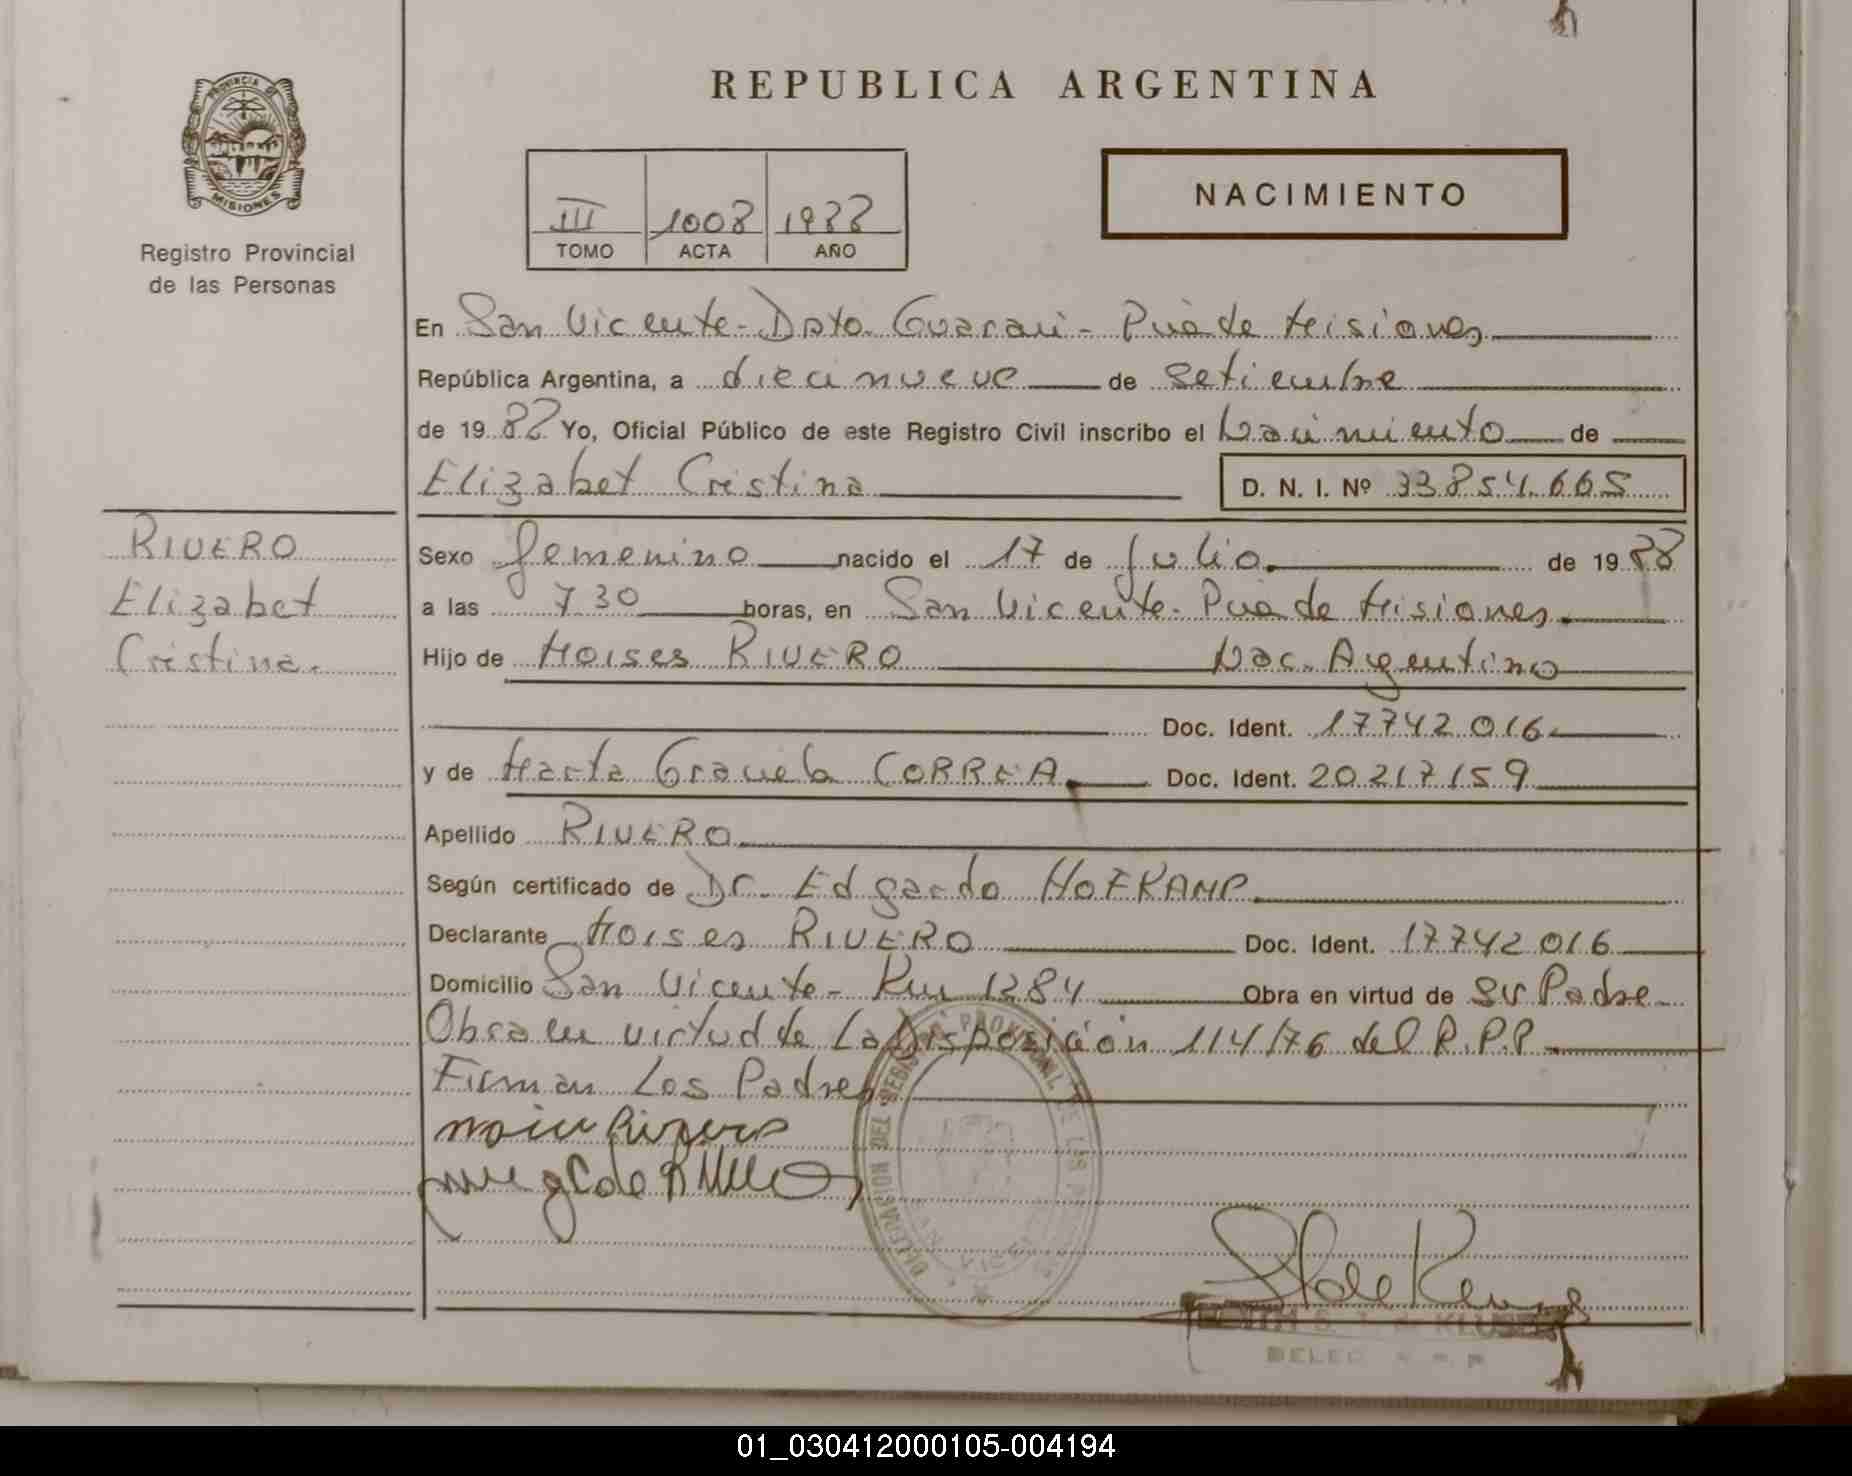 PROVINCIA DE
MISIONES
Registro Provincial
de las Personas
REPUBLICA ARGENTINA
III 1008 1988
TOMO ACTA AÑO
NACIMIENTO
En San Vicente - Dpto. Guaraní - Pcia de Misiones
República Argentina, a diecinueve de setiembre
de 1988 Yo, Oficial Público de este Registro Civil inscribo el Nacimiento de
Elizabet Cristina D. N. I. Nº 33854.665
RIVERO
Elizabet
Cristina.
Sexo femenino nacido el 17 de Julio. de 1988
a las 7 30 horas, en San Vicente - Pcia de Misiones.
Hijo de Moises RIVERO Nac. Argentino
Doc. Ident. 17742016
y de Marta Graciela CORREA. Doc. Ident. 20217159
Apellido RIVERO
Según certificado de Dr. Edgardo HOFKAMP
Declarante Moises RIVERO Doc. Ident. 17742016
Domicilio San Vicente - Km 1284 Obra en virtud de su Padre
Obra en virtud de La Disposición 114/76 del R.P.P
Firman Los Padres
DELEGACION DEL REGISTRO PROVINCIAL DE LAS
DELEG
01_030412000105-004194